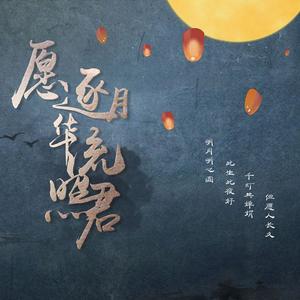 愿逐月华流照君
但愿人长久
千里共婵娟
此生此夜好
明月明心圆